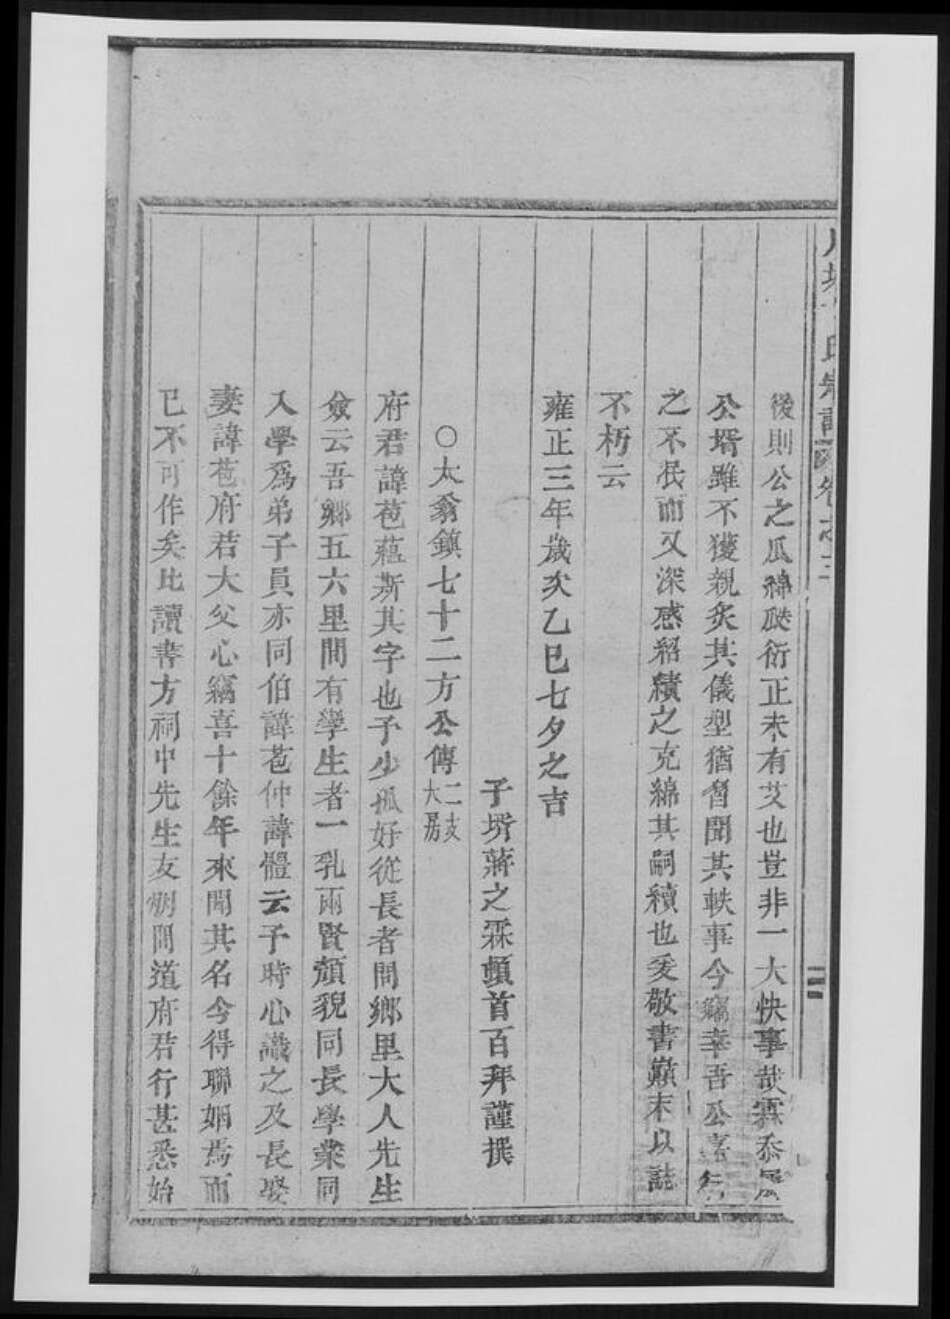 氏宗譜 卷之二
後則公之瓜綿瓞衍正未有艾也豈非一大快事哉霖忝屬
公壻雖不獲親炙其儀型猶習聞其軼事今竊幸吾公嘉行
之不泯而又深感紹續之克綿其嗣續也爰敬書巔末以誌
不朽云
雍正三年歲次乙巳七夕之吉
子壻蔣之霖頓首百拜謹撰
〇太翁鎮七十二方公傳 二支大房
府君諱苞蘊斯其字也予少孤好從長者問鄉里大人先生
僉云吾鄉五六里間有孿生者一乳兩賢顏貌同長學業同
入學爲弟子員亦同伯諱苞仲諱體云予時心識之及長娶
妻諱苞府君大父心竊喜十餘年來聞其名今得聯姻焉而
已不可作矣比讀書方祠中先生友炯間道府君行甚悉始